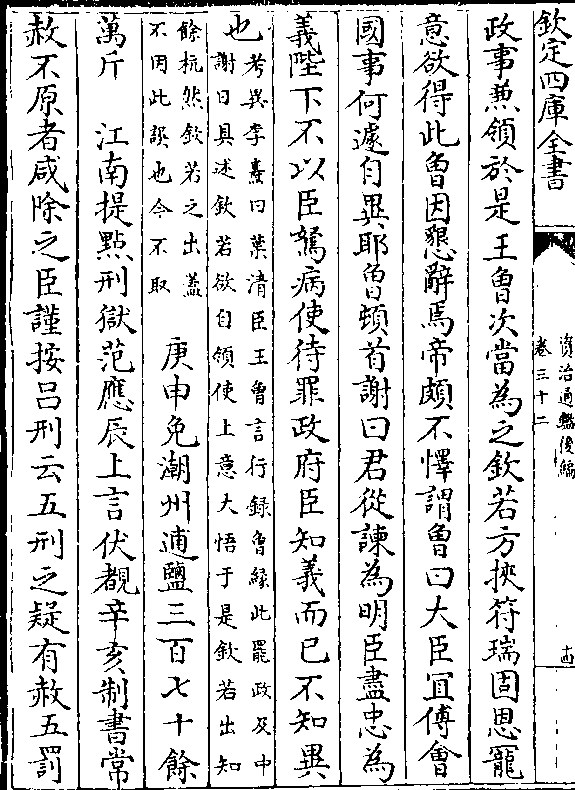 欽定四庫全書
資治通鑑後編
卷三十二
十四
政事兼領於是王曾次當為之欽若方挾符瑞固恩寵
意欲得此曾因懇辭焉帝頗不懌謂曾曰大臣宜傅會
國事何遽自異耶曾頓首謝曰君從諫為明臣盡忠為
義陛下不以臣駑病使待罪政府臣知義而已不知異
也
考異李燾曰葉清臣王曾言行録曾緣此罷政及中
謝日具述欽若欲自領使上意大悟于是欽若出知
餘杭然欽若之出蓋
不因此誤也今不取
庚申免潮州逋鹽三百七十餘
萬斤　江南提點刑獄范應辰上言伏覩辛亥制書常
赦不原者咸除之臣謹按呂刑云五刑之疑有赦五罰